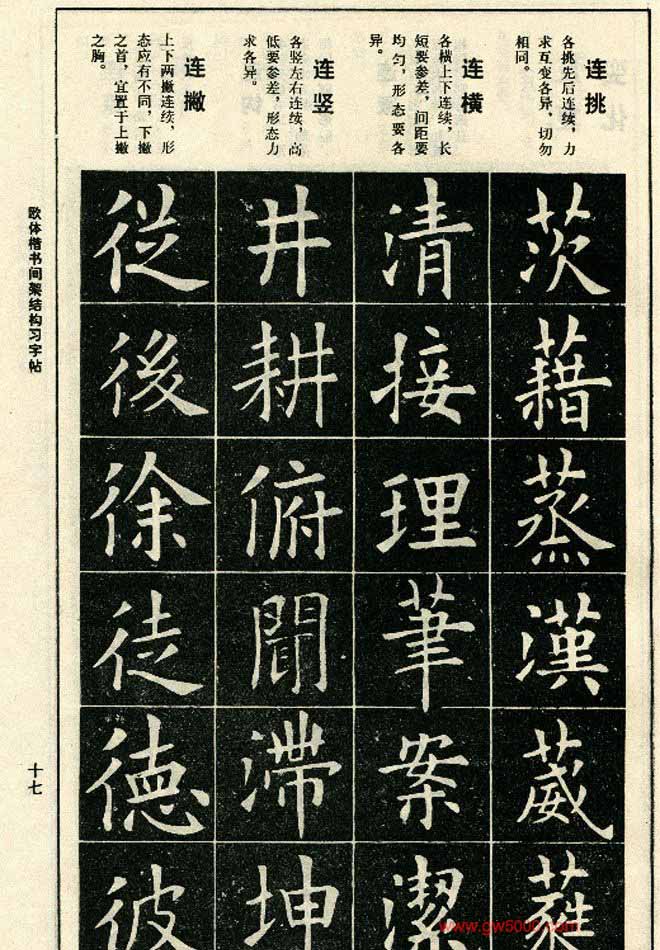 连挑
各挑先后连续，力
求互变各异，切勿
相同。
连横
各横上下连续，长
短要参差，间距要
均匀，形态要各
异。
连竖
各竖左右连续，高
低要参差，形态力
求各异。
连撇
上下两撇连续，形
态应有不同，下撇
之首，宜置于上撇
之胸。
茨藉蒸漢葳蕤
清接理筆案潔
井耕俯聞滯坤
従後徐徒徳彼
欧体楷书间架结构习字帖
十七
www.gw5000.com